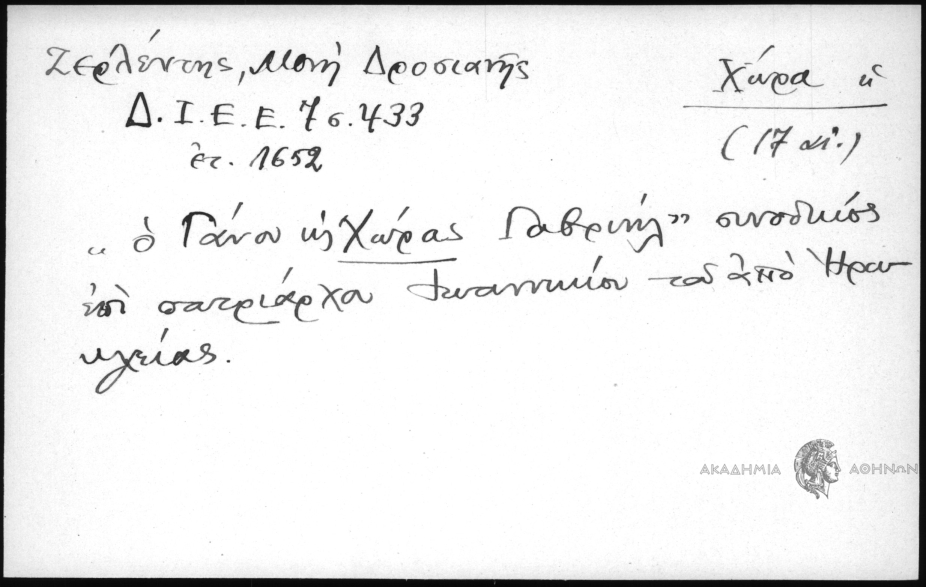 Ζερλέντης, Μονὴ Δροσιανῆς
Χώρα ἡ
Δ.Ι.Ε.Ε. 7 σ. 433
(17 αἰ.)
ἐτ. 1652
"ὁ Γάνου κ Χώρας Γαβριήλ" συνοδικῶς
ἐπὶ πατριάρχου Ἰωαννικίου τοῦ ἀπὸ Ἡρα-
κλείας.
ΑΚΑΔΗΜΙΑ ΑΘΗΝΩΝ